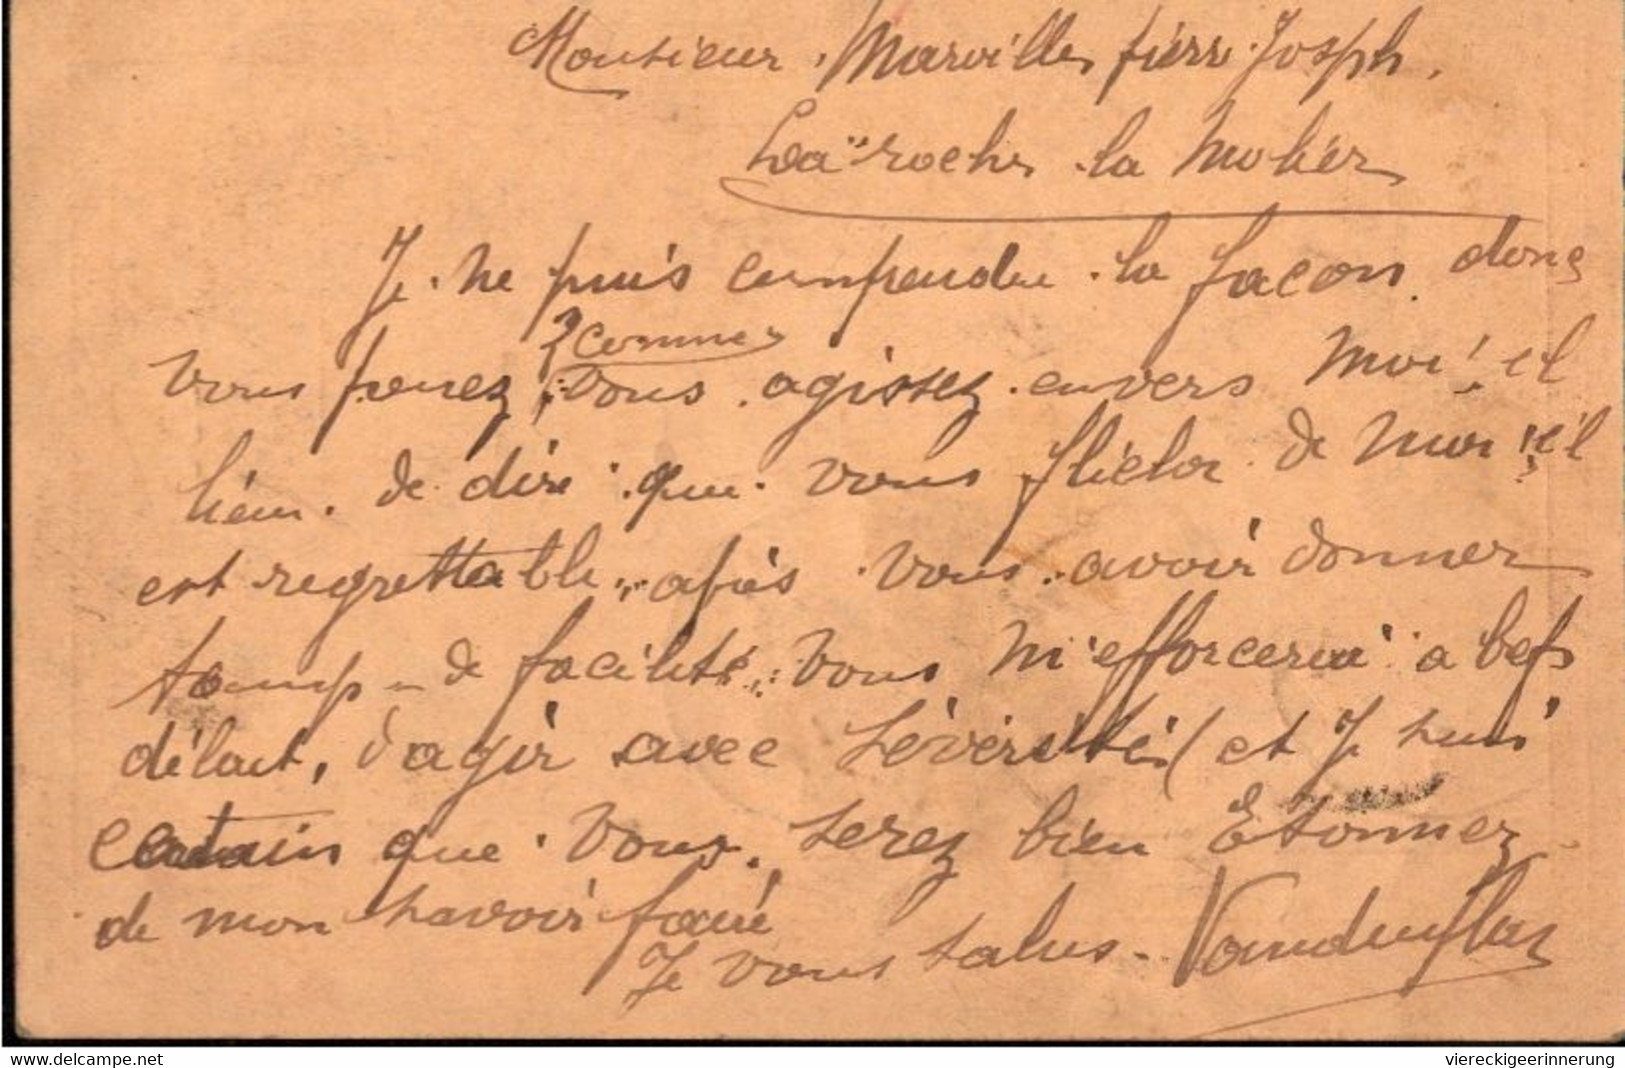 Monsieur Marville pierre Joseph.
La roche la Molier
Je ne puis comprendre la façon donc
comme
vous pouvez, vous agissez envers Moi! il
lieu de dire que vous de Moi il
est regrettable, après vous avoir donner
temp de facilité, vous m'efforcerai a bef
délait, d'agir avec sévérité (et Je suis
certain que vous serez bien Etonner
de mon savoir faire
Je vous salus
www.delcampe.net
viereckigeerinnerung